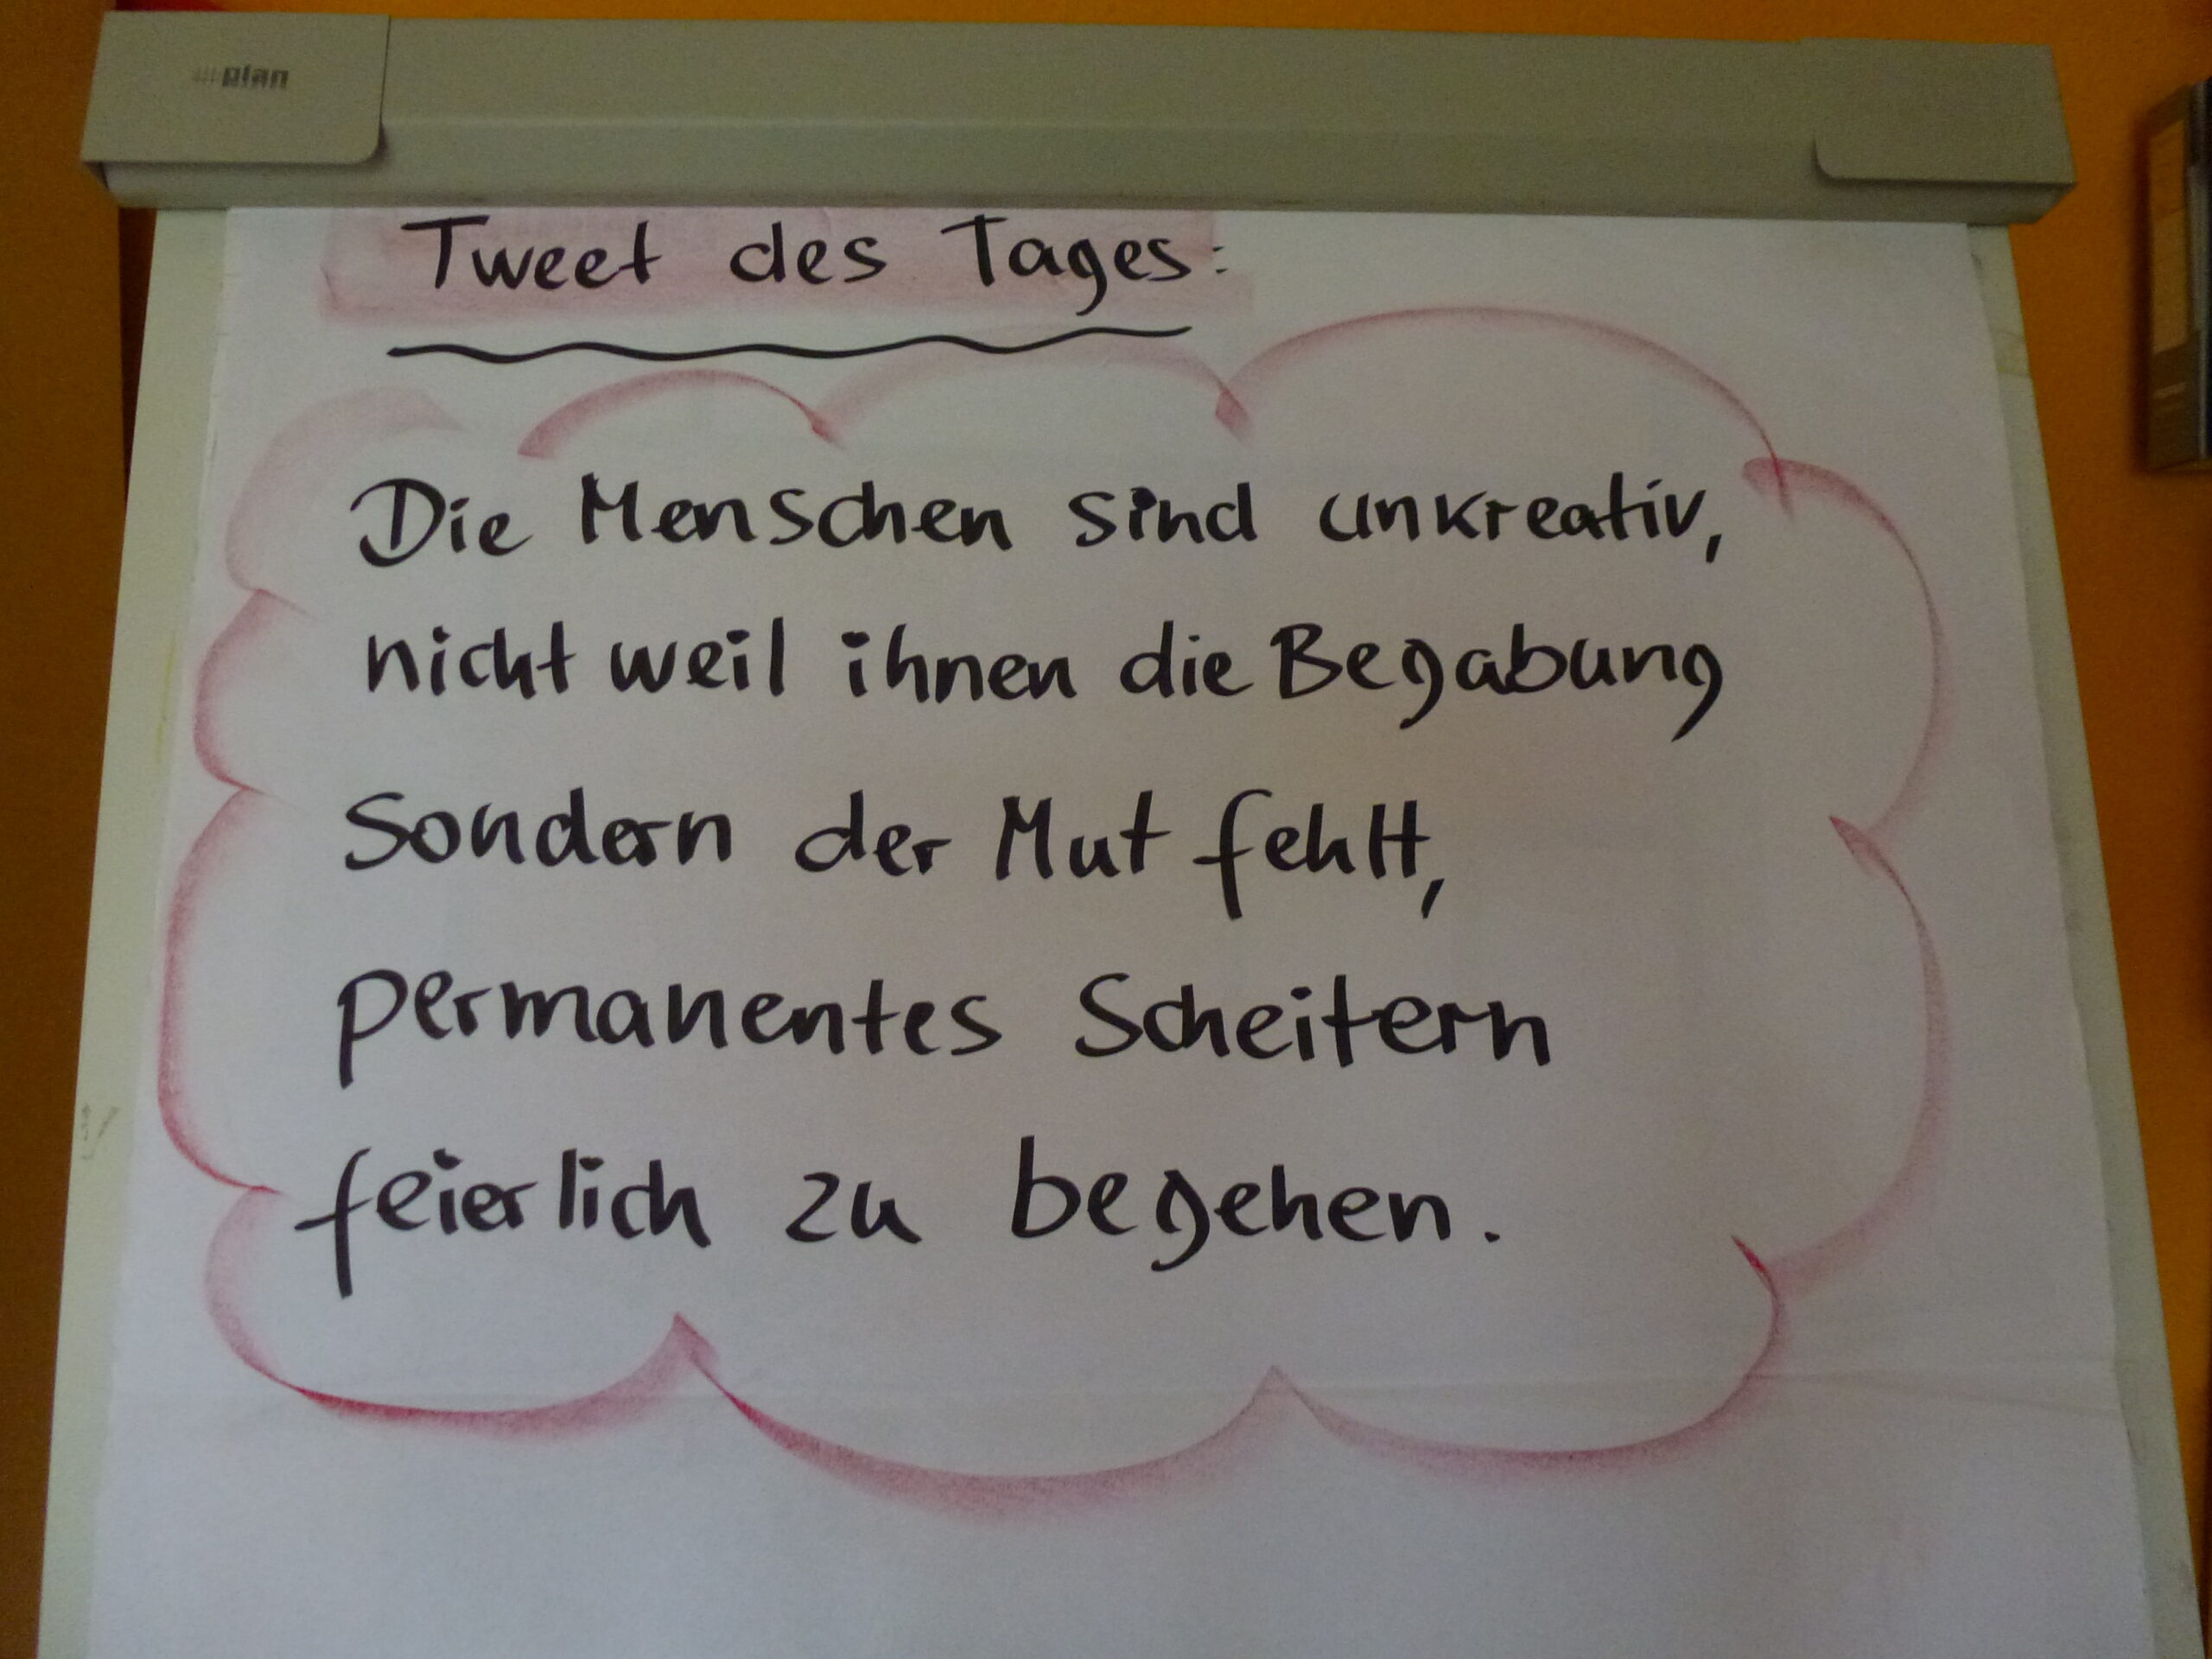 plan
Tweet des Tages:
Die Menschen sind unkreativ,
nicht weil ihnen die Begabung
sondern der Mut fehlt,
permanentes Scheitern
feierlich zu begehen.